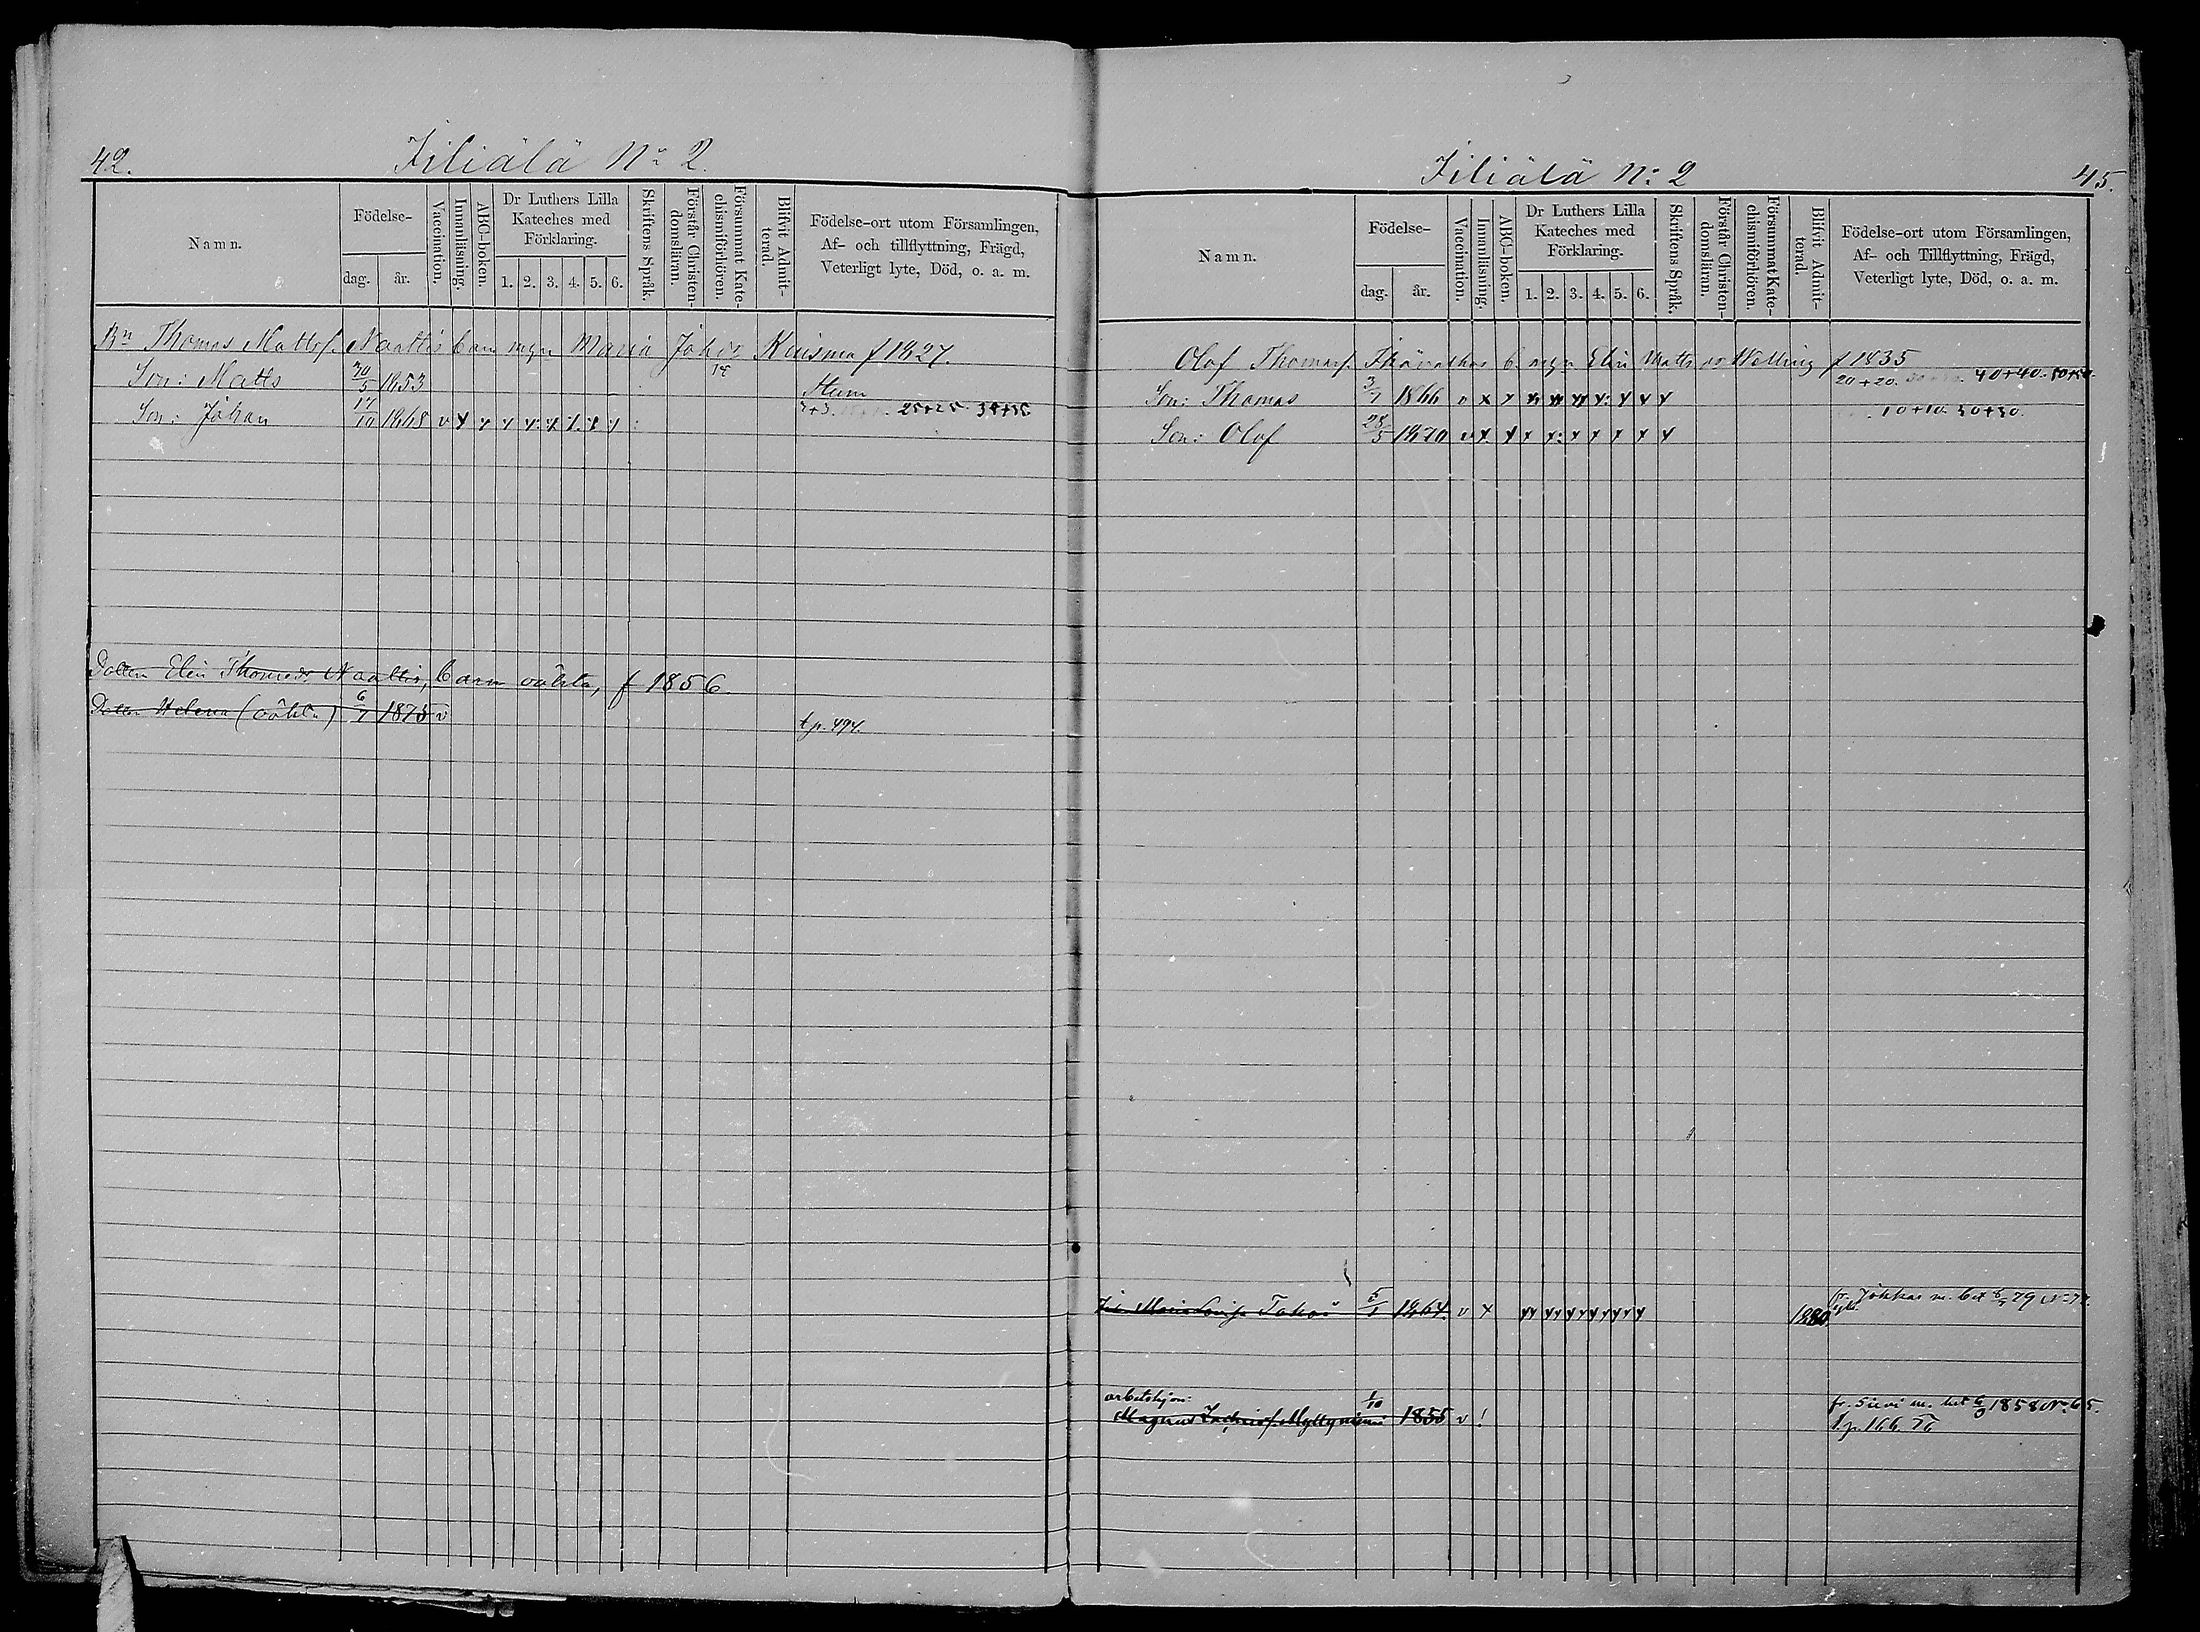 42.
Jiliälä No 2.
Namn.
Födelse-
dag.
år.
Vaccination.
Innanläsning.
ABC-boken.
Dr Luthers Lilla
Kateches med
Förklaring.
1. 2. 3. 4. 5. 6.
Skriftens Språk.
Förstår Christen-
domsläran.
Försummat Kate-
chismiförhören.
Blifvit Admit-
terad.
Födelse-ort utom Församlingen,
Af- och tillflyttning, Frägd,
Veterligt lyte, Död, o. a. m.
Bn Thomas Mattss. Naattis barn m. Maria Johds Kuisma f 1827.
Son: Matts 30/5 1853 Stum
Son: Johan 17/10 1868 v x x x x x x x x 3+3. 25+25
Dottern Elin Thomasdr Naattis, barn oäkta, f 1856.
Dotter Helena (oäkta) 6/7 1875 v t p. 494.
Jiliälä No 2
45.
Namn.
Födelse-
dag.
år.
Vaccination.
Innanläsning.
ABC-boken.
Dr Luthers Lilla
Kateches med
Förklaring.
1. 2. 3. 4. 5. 6.
Skriftens Språk.
Förstår Christen-
domsläran.
Försummat Kate-
chismiförhören.
Blifvit Admit-
terad.
Födelse-ort utom Församlingen,
Af- och Tillflyttning, Frägd,
Veterligt lyte, Död, o. a. m.
Olof Thomass. b. Elin Matts dr f 1835
Son: Thomas 3/7 1866 v x x x x x x x x x 20+20. 40+40. 50+50.
Son: Olof 28/5 1870 v x x x x x x x x x 10+10. 30+30.
Maria Lovisa 5/1 1864. v x 1880. fr. Jokkas m. bet 6/7 79 No 72.
arbetshjon:
Magnus Zachriss. Myllyniemi 1/10 1855 v ! fr. Sievi m. bet 6/9 1858 No 65.
t. p. 166.